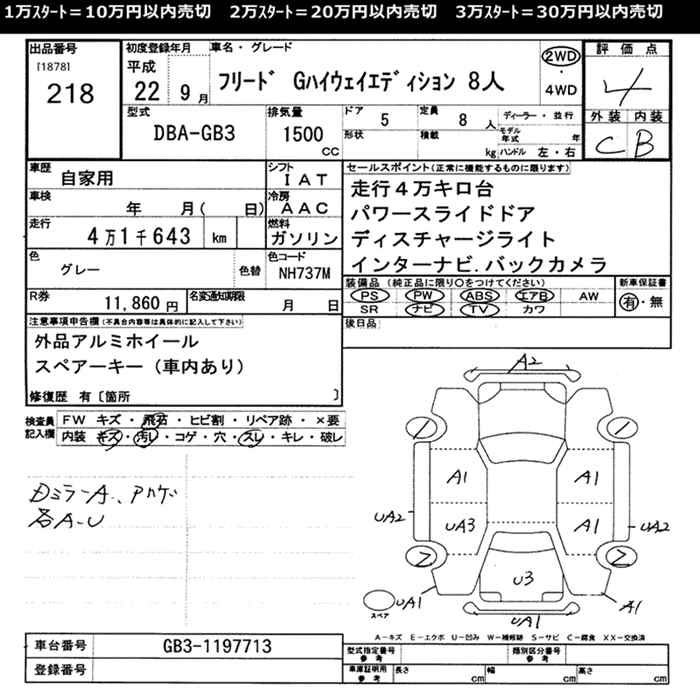 1万ｽﾀｰﾄ＝10万円以内売切　2万ｽﾀｰﾄ＝20万円以内売切　3万ｽﾀｰﾄ＝30万円以内売切
出品番号
[1878]
218
初度登録年月
平成
22 9月
車名・グレード
フリード Gハイウェイエディション 8人
2WD
・
4WD
評価点
4
外装 内装
C B
型式
DBA-GB3
排気量
1500
cc
ドア 5
形状
定員 8 人
積載 kg
ディーラー・並行
モデル年式 年
ハンドル 左・右
車歴
自家用
シフト
IAT
車検
年 月( 日)
冷房
AAC
走行
4万1千643 km
燃料
ガソリン
色
グレー
色替
色コード
NH737M
R券
11,860円
名変通知期限
月 日
セールスポイント(正常に機能するものに限ります)
走行４万キロ台
パワースライドドア
ディスチャージライト
インターナビ.バックカメラ
装備品 (純正品に限り○をつけてください)
PS PW ABS エアB AW
SR ナビ TV カワ
新車保証書
有・無
後日品
注意事項申告欄(不具合内容等は具体的に記入して下さい)
外品アルミホイール
スペアーキー（車内あり）
修復歴 有〔箇所 〕
検査員記入欄
FW キズ・飛石・ヒビ割・リペア跡・×要
内装 キズ・汚レ・コゲ・穴・スレ・キレ・破レ
DミラーA、アカケ
各A-U
A2
1
1
A1
A1
UA2
UA3
A1
UA2
2
2
U3
UA1
A1
UA1
スペア
A－キズ E－エクボ U－凹み W－補修跡 S－サビ C－腐食 XX－交換済
車台番号
GB3-1197713
登録番号
型式指定番号
参考
類別区分番号
参考
車庫証明用
参考
長さ cm
幅 cm
高さ cm